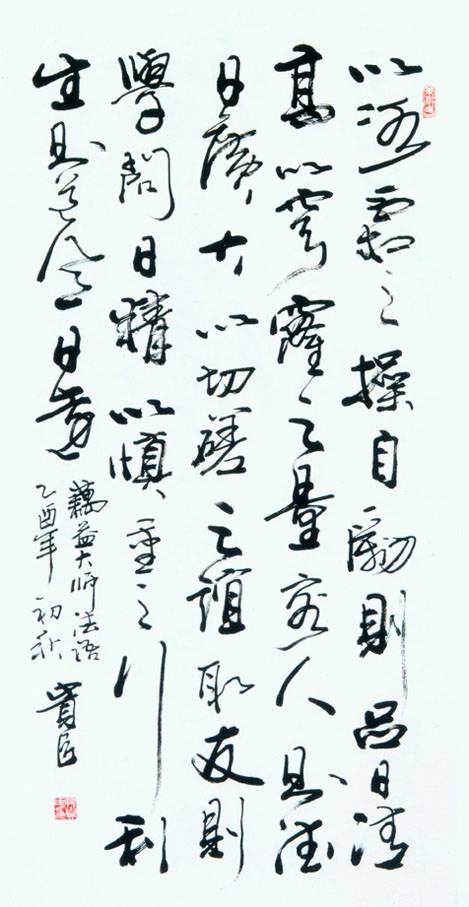 以冰霜之操自勵則品日清
高以穹窿之量容人則德
日廣大以切磋之誼取友則
學問日精以慎重之行利
生則道風日遠
藕益大師法語
乙酉年初秋